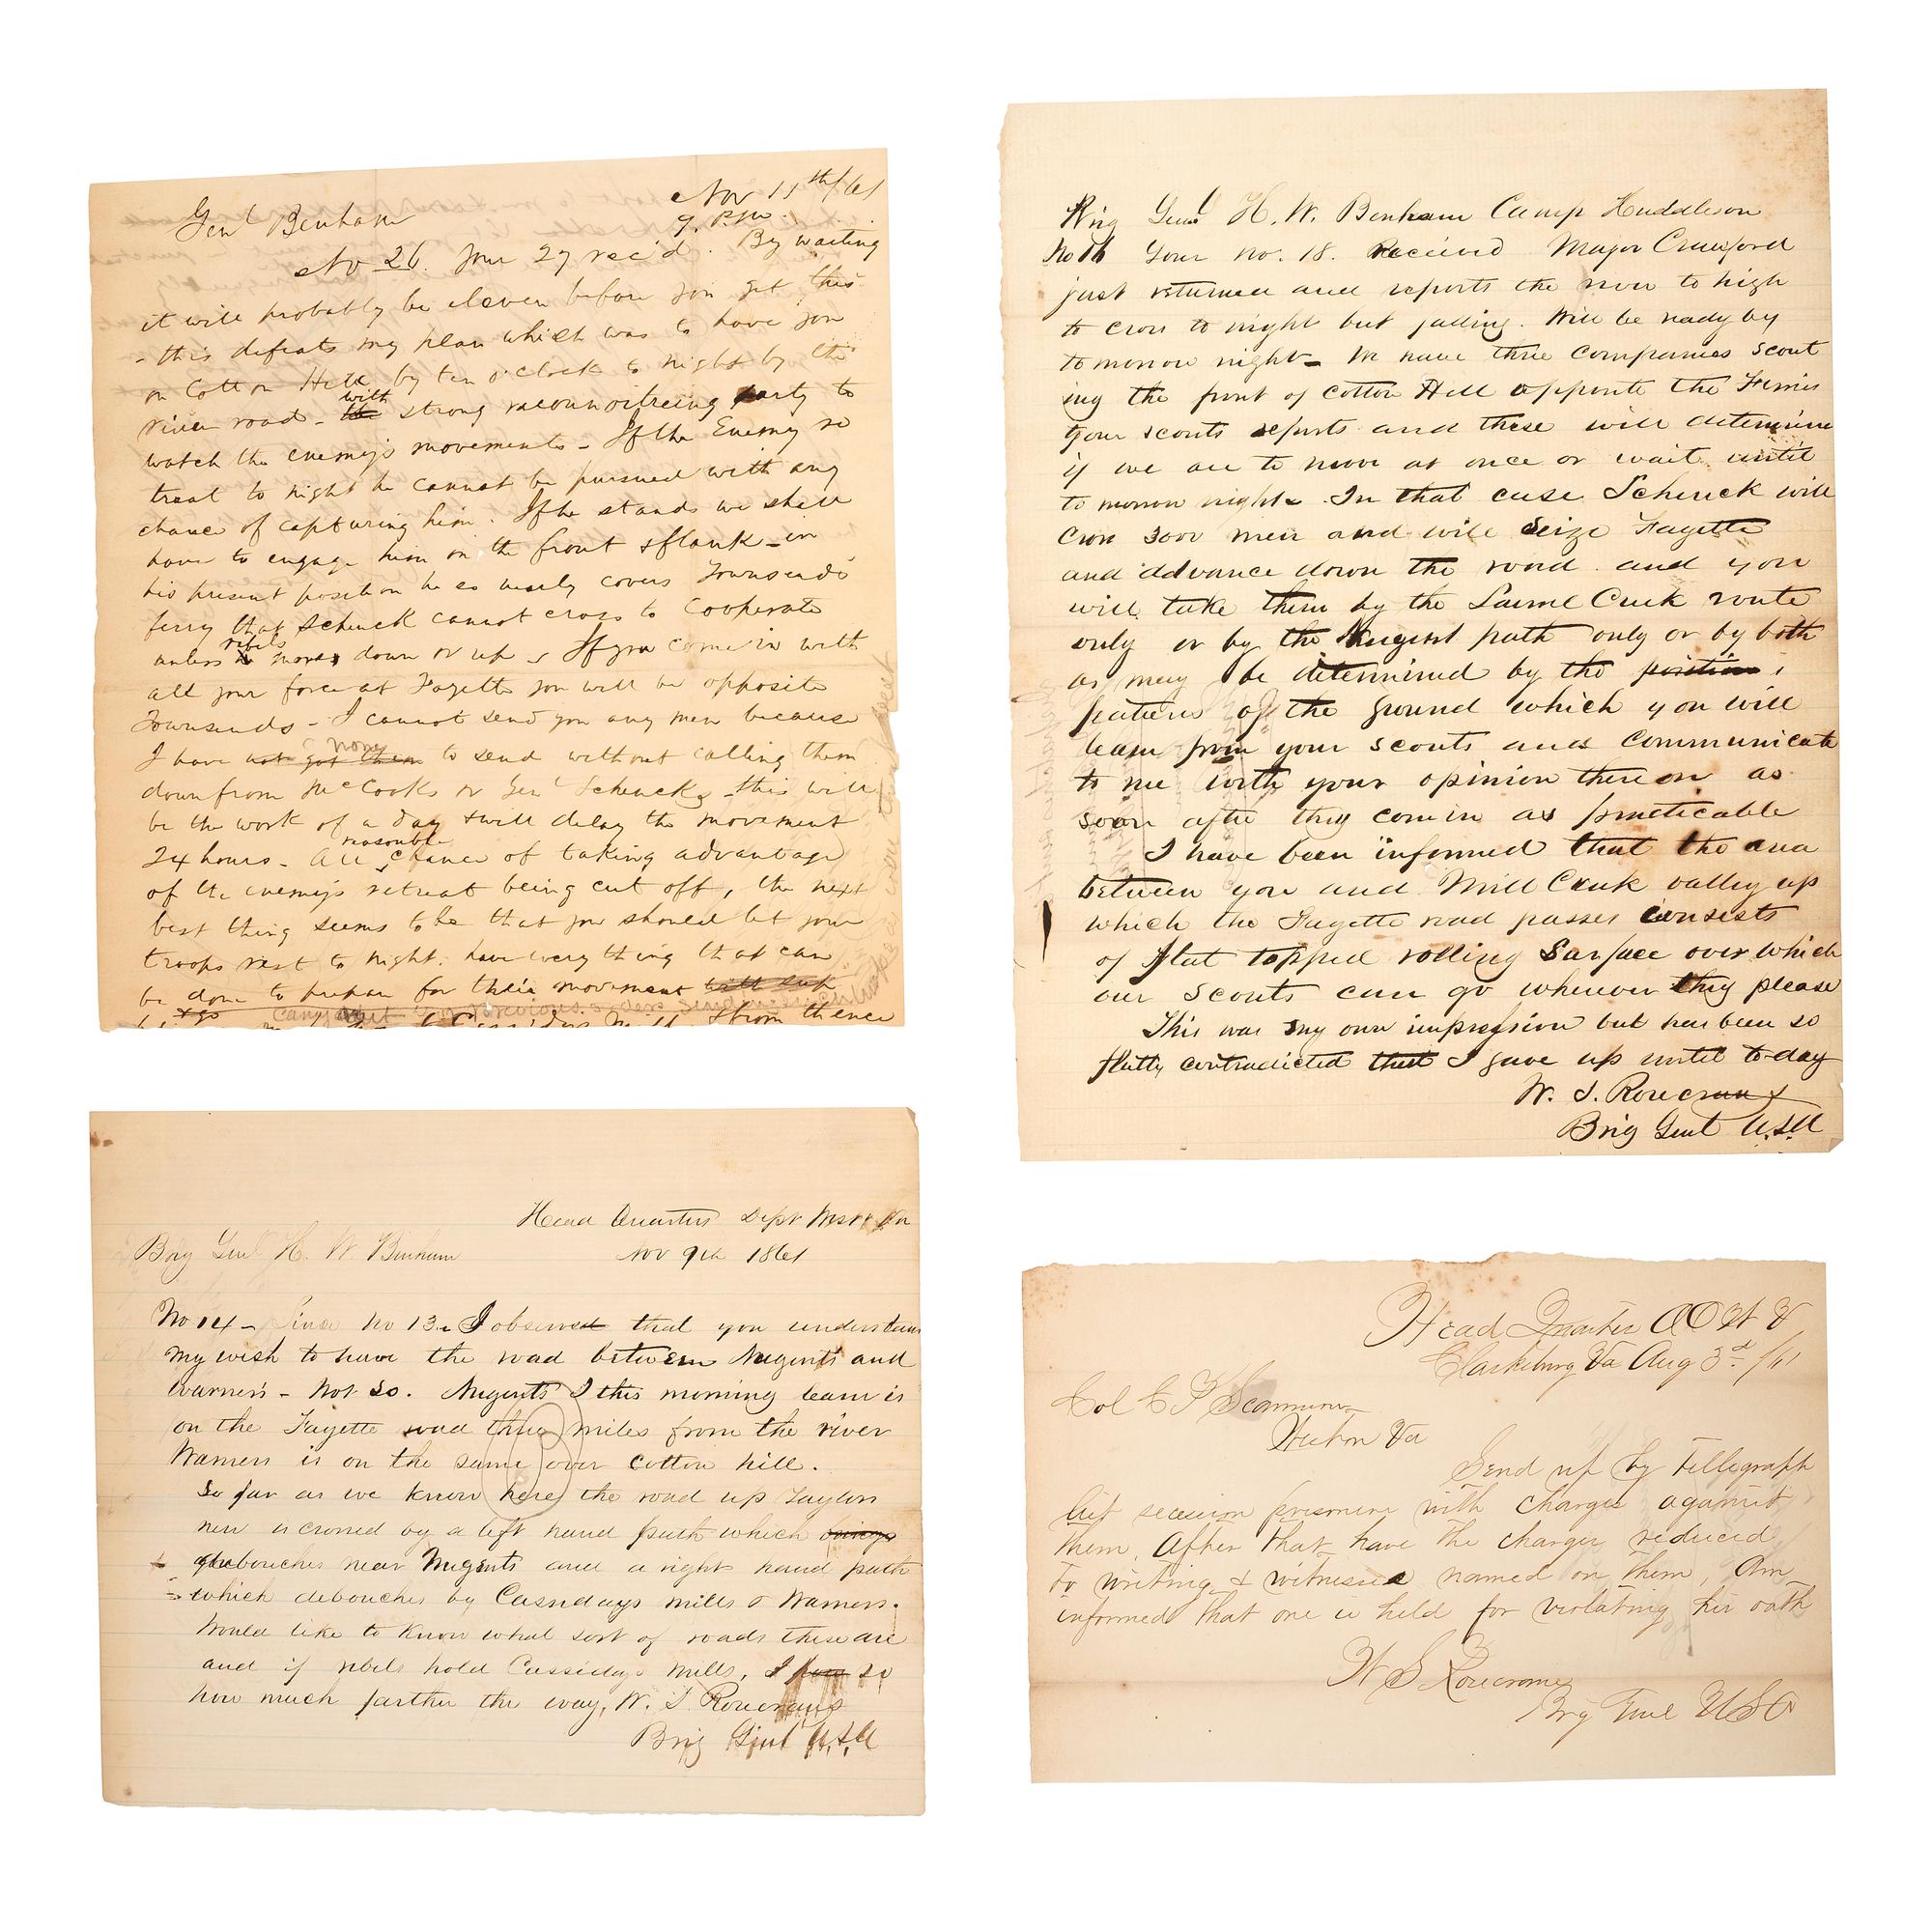 Nov 11th/61
Genl Benham 9. P.M.
No 26. Your 27 rec'd. By waiting
it will probably be eleven before you get this
- this defeats my plan which was to have you
on Cotton Hill by ten o'clock to night by the
river road - with strong reconnoitreing party to
watch the enemy's movements - If the Enemy re
treat to night he cannot be pursued with any
chance of capturing him. If he stands we shall
have to engage him on the front & flank - in
his present position he so nearly covers Townsends
ferry that Schenck cannot cross to Cooperate
unless rebels move down or up - If you come in with
all your force at Fayette you will be opposite
Townsends - I cannot send you any men because
I have not got them none to send without calling them
down from McCooks or Genl Schencks - this will
be the work of a day & will delay the movement
24 hours - All reasonable chance of taking advantage
of the enemy's retreat being cut off, the next
best thing seems to be that you should let your
troops rest to night. have every thing that can
be done to prepare for their movement
& go from thence
Brig Genl H. W. Benham Camp Huddleson
No 16 Your no. 18. Received Major Crawford
just returned and reports the river to high
to cross to night but falling. Will be ready by
tomorrow night - We have three companies scout
ing the front of Cotton Hill opposite the Ferries
your scouts reports and these will determine
if we are to move at once or wait until
tomorrow night - In that case Schenck will
cross 3000 men and will seize Fayette
and advance down the road. and you
will take them by the Laurel Creek route
only or by the Nugent path only or by both
as may be determined by the position
features of the ground which you will
learn from your scouts and communicate
to me with your opinion thereon as
soon after they come in as practicable
I have been informed that the area
between you and Mill Creek valley up
which the Fayette road passes consists
of flat topped rolling Surface over which
our scouts can go wherever they please
This was my own impression but has been so
flatly contradicted that I gave up until to-day
W. S. Rosecrans
Brig Genl U.S.A
Head Quarters Dept West Va
Brig Genl H. W. Benham Nov 9th 1861
No 14 - Since No 13. I observed that you understand
my wish to have the road between Nugents and
Warners - Not So. Nugents I this morning learn is
on the Fayette road three miles from the river
Warners is on the same over Cotton hill.
So far as we know here the road up Laylors
new is crossed by a left hand path which brings
debouches near Nugents and a right hand path
which debouches by Cassidays mills & Warners.
Would like to know what sort of roads these are
and if rebels hold Cassidays Mills, I how so
how much farther the way, W. S. Rosecrans
Brig Genl U.S.A
Head Quarter A O W V
Clarksburg Va Aug 3d /61
Col E P Scammon
Weston Va
Send up by Tellegraph
list secession prisoners with charges against
them. After that have the charges reduced
to writing & witnesses named on them, Am
informed that one is held for violating his oath
W S Rosecrans
Brig Genl USA